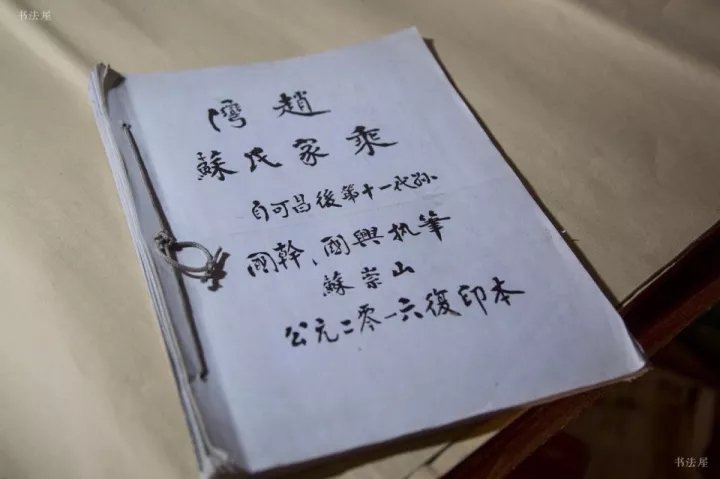 书法屋
灣趙
蘇氏家乘
自可昌後第十一代孙
國幹、國興执筆
蘇崇山
公元二零一六復印本
书法屋